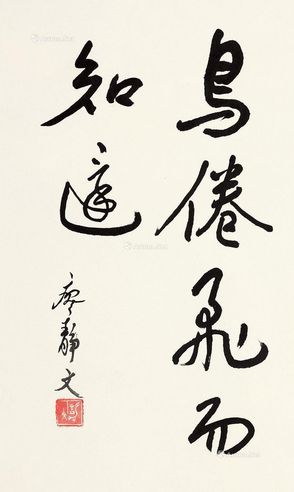 鳥倦飛而
知還
廖靜文